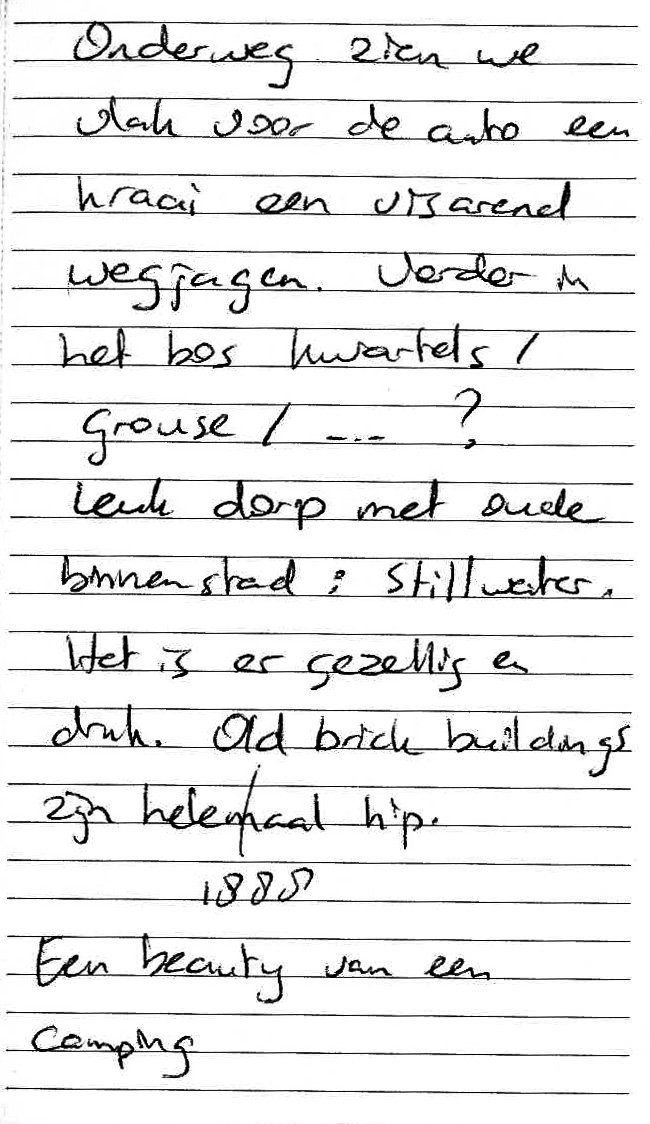 Onderweg zien we
vlak voor de auto een
kraai een visarend
wegjagen. Verder in
het bos kwartels /
Grouse / ---- ?
Leuk dorp met oude
binnenstad : Stillwater.
Het is er gezellig en
druk. Old brick buildings
zijn helemaal hip.
1888
Een beauty van een
camping